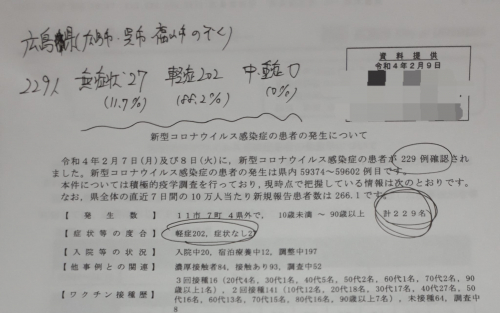 広島県(広島市・呉市・福山市のぞく)
229人 無症状・27 軽症202 中・重症0
(11.7%) (88.2%) (0%)
資料提供
令和4年2月9日
新型コロナウイルス感染症の患者の発生について
令和4年2月7日(月)及び8日(火)に,新型コロナウイルス感染症の患者が229例確認されました。新型コロナウイルス感染症の患者の発生は県内59374~59602例目です。
本件については積極的疫学調査を行っており,現時点で把握している情報は次のとおりです。
なお,県全体の直近7日間の10万人当たり新規報告患者数は266.1です。
【発生数】 11市7町4県外で, 10歳未満~90歳以上 計229名
【症状等の度合】 軽症202, 症状なし27
【入院等の状況】 入院中20, 宿泊療養中12, 調整中197
【他事例との関連】 濃厚接触者84, 接触あり93, 調査中52
【ワクチン接種歴】 3回接種16(20代4名,30代1名,40代5名,50代2名,60代1名,70代2名,90歳以上1名), 2回接種141(10代12名,20代18名,30代17名,40代27名,50代16名,60代13名,70代15名,80代16名,90歳以上7名), 未接種64, 調査中8